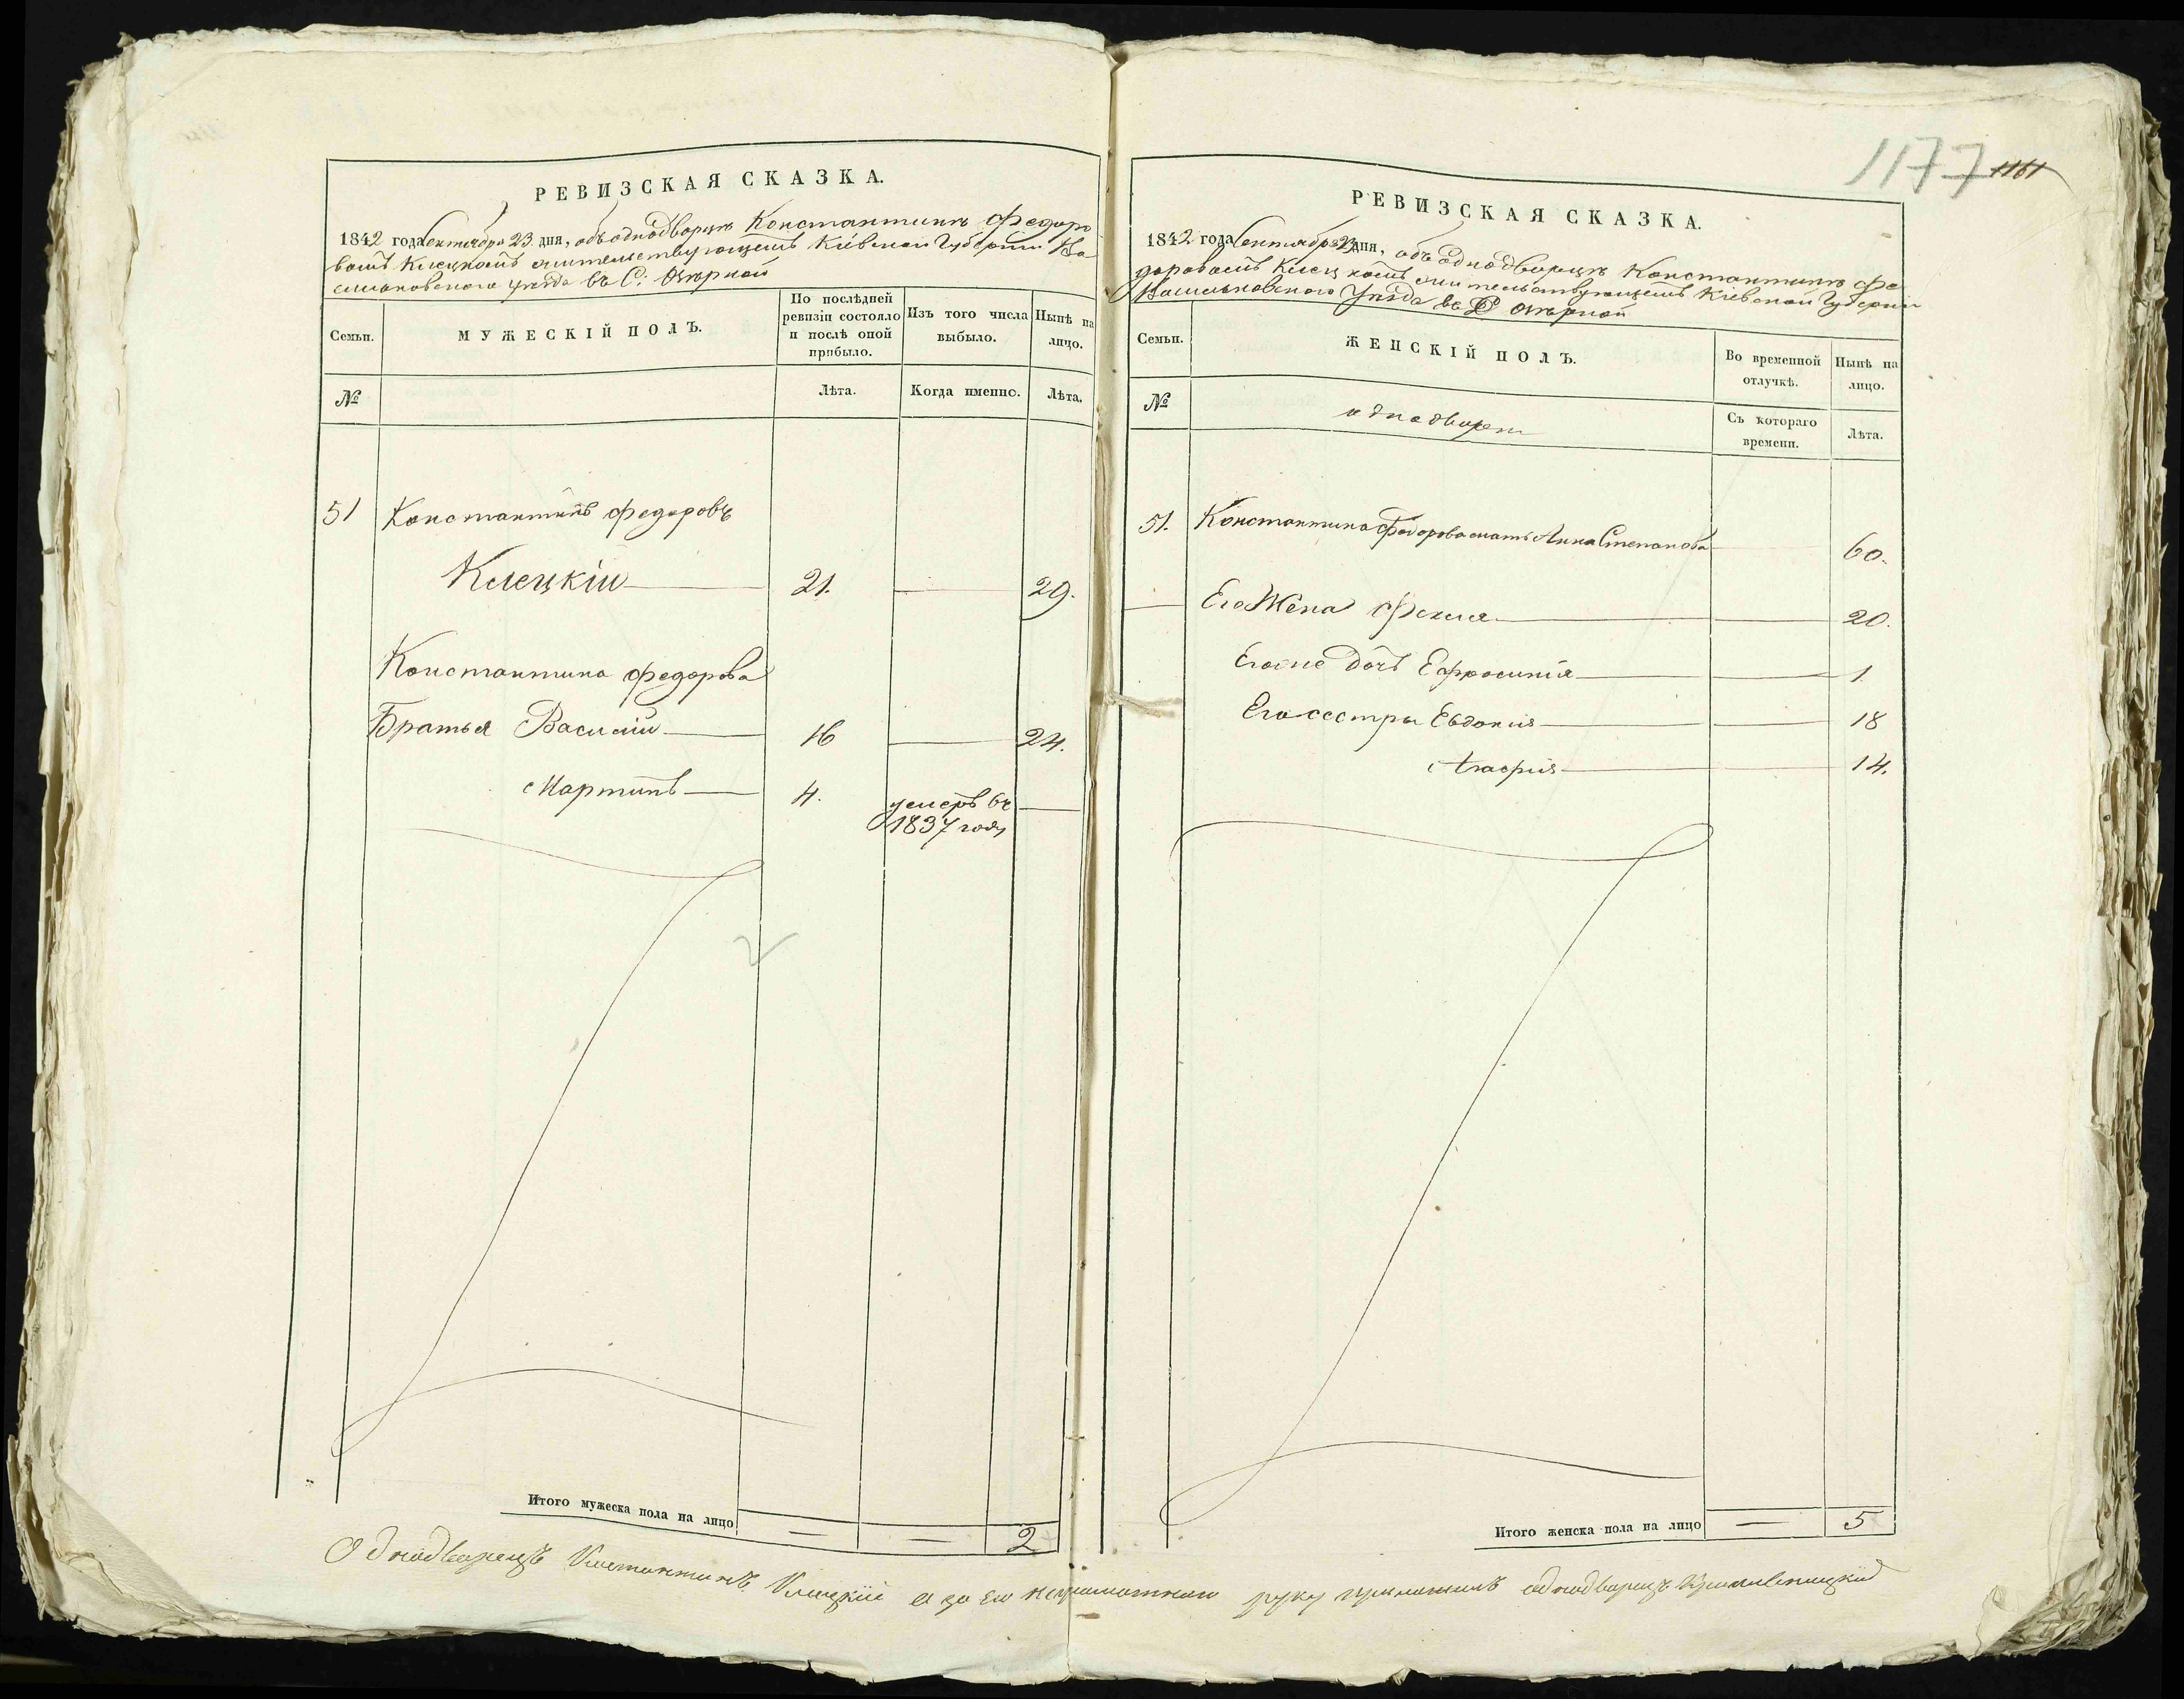 РЕВИЗСКАЯ СКАЗКА.
1842 года Сентября 23 дня, объ однодворцѣ Константинѣ Федоро
вомъ Клецкомъ жительствующемъ Кіевской Губерніи Ва
сильковскаго уѣзда въ С: Озѣрной
Семьи.
МУЖЕСКІЙ ПОЛЪ.
По послѣдней ревизіи состояло и послѣ оной прибыло.
Изъ того числа выбыло.
Нынѣ на лицо.
№
Лѣта.
Когда именно.
Лѣта.
51 Константинъ Федоровъ
Клецкій 21. 29.
Константина Федорова
Братья Василій 16 24.
Мартинъ 4. умеръ въ
1837 году
Итого мужеска пола на лицо — — 2
1177 1161
РЕВИЗСКАЯ СКАЗКА.
1842 года Сентября 23 дня, объ однодворцѣ Константинѣ Фе
доровомъ Клецкомъ жительствующемъ Кіевской Губерніи
Васильковского Уѣзда въ С Озѣрной
Семьи.
ЖЕНСКІЙ ПОЛЪ.
Во временной отлучкѣ.
Нынѣ на лицо.
№
однодворец
Съ котораго времени.
Лѣта.
51. Константина Федорова мать Анна Степанова 60.
Его Жена Фекла 20.
Его же дочь Ефросинія 1
Его сестры Евдокія 18
Агафія 14.
Итого женска пола на лицо — 5
Однодворецъ Константинъ Клецкій а за его неграмотного руку приложилъ однодворецъ